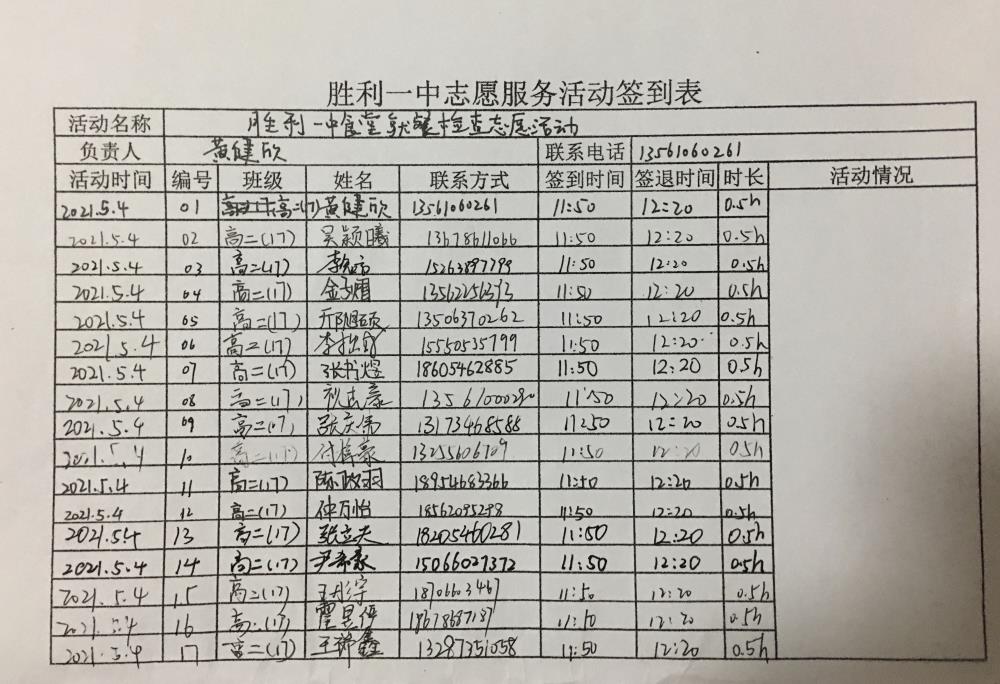 胜利一中志愿服务活动签到表
活动名称 胜利一中食堂就餐检查志愿活动
负责人 黄健欣 联系电话 13561060261
活动时间 编号 班级 姓名 联系方式 签到时间 签退时间 时长 活动情况
2021.5.4 01 高二(17) 黄健欣 13561060261 11:50 12:20 0.5h
2021.5.4 02 高二(17) 吴颖曦 13678611066 11:50 12:20 0.5h
2021.5.4 03 高二(17) 15263897799 11:50 12:20 0.5h
2021.5.4 04 高二(17) 11:50 12:20 0.5h
2021.5.4 05 高二(17) 13506370262 11:50 12:20 0.5h
2021.5.4 06 高二(17) 15550535799 11:50 12:20 0.5h
2021.5.4 07 高二(17) 张书煜 18605462885 11:50 12:20 0.5h
2021.5.4 08 高二(17) 11:50 12:20 0.5h
2021.5.4 09 高二(17) 张庆伟 13173468588 12:20 0.5h
2021.5.4 10 高二(17) 11:50 12:20 0.5h
2021.5.4 11 高二(17) 陈政羽 18954683366 11:50 12:20 0.5h
2021.5.4 12 高二(17) 仲万怡 18562095298 11:50 12:20 0.5h
2021.5.4 13 高二(17) 张立夫 18205460281 11:50 12:20 0.5h
2021.5.4 14 高二(17) 15066027372 11:50 12:20 0.5h
2021.5.4 15 高二(17) 王彤宇 11:50 12:20 0.5h
2021.5.4 16 高二(17) 11:50 12:20 0.5h
2021.5.4 17 高二(17) 13287351058 11:50 12:20 0.5h